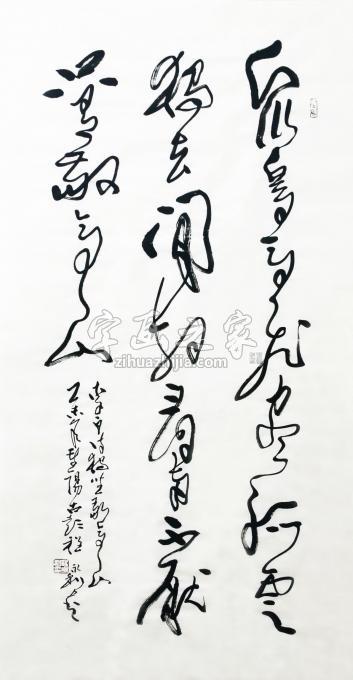 众鳥高飛盡孤雲
獨去閒相看兩不厭
只有敬亭山
李白诗獨坐敬亭山
字画之家
zihuazhijia.com